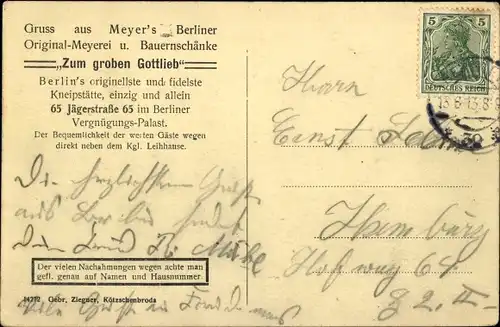 Gruss aus Meyer's Berliner
Original-Meyerei u. Bauernschänke
„Zum groben Gottlieb“
Berlin's originellste und fidelste
Kneipstätte, einzig und allein
65 Jägerstraße 65 im Berliner
Vergnügungs-Palast.
Der Bequemlichkeit der werten Gäste wegen
direkt neben dem Kgl. Leihhause.
Die herzlichsten Grüße
aus Berlin sendet
Dein Freund
Der vielen Nachahmungen wegen achte man
gefl. genau auf Namen und Hausnummer.
14712 Gebr. Ziegner, Kötzschenbroda
Viele Grüße
5 5
DEUTSCHES REICH
Herrn
Ernst
Hamburg
Hofweg 64